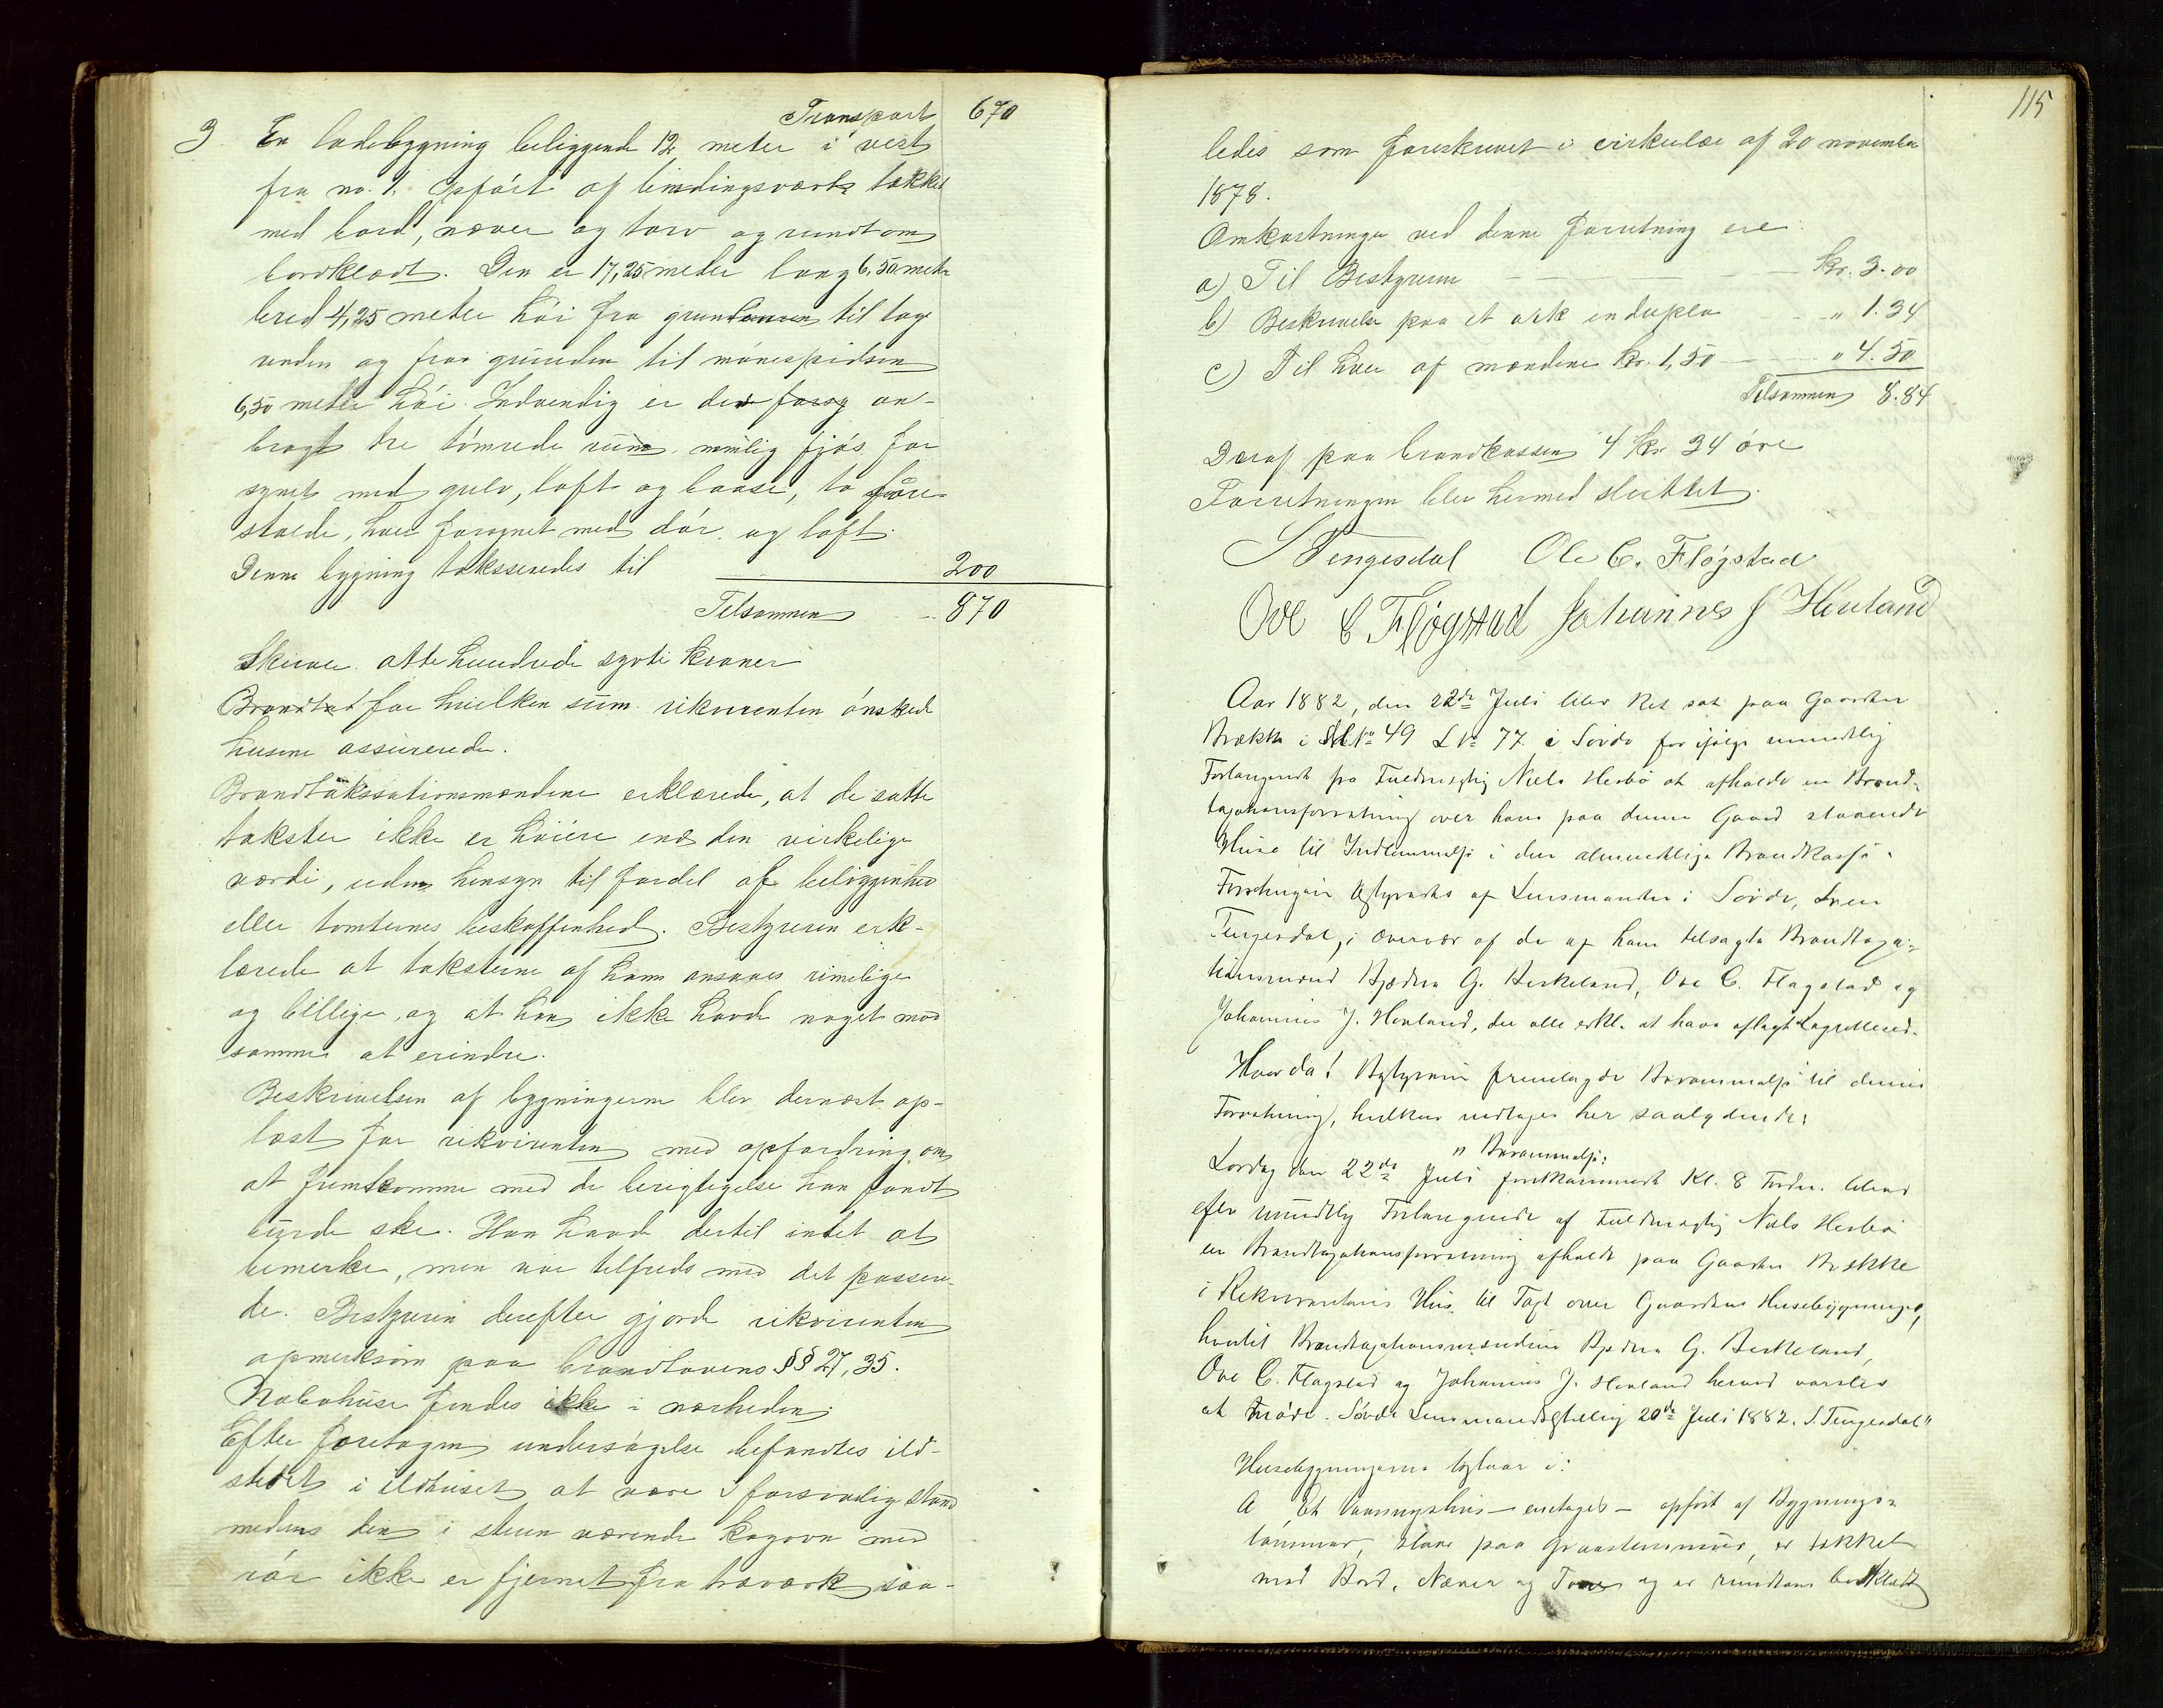 Transport 670
3 En ladebygning beliggende 12 meter i vest
fra no. 1. Opført af bindingsværk takket
med bord, næver og torv og rundt om
bordklædt. Den er 17,25 meter lang 6,50 meter
bred 4,25 meter høi fra grundmuren til tag
unden og fra grunden til mønespidsen
6,50 meter høi. Indvendig er der an-
bragt tre tømrede rum, nemlig fjøs, for
synet med gulv, loft og baase, to faare-
stalde, hver forsynet med dør og loft.
Denne bygning taksseredes til 200
Tilsammen - 870
Skriver otte hundrede sytti kroner
for hvilken sum rikvirenten ønskede
husene assurerede.
Brandtakssationsmændene erklærede, at de satte
takster ikke er høiere end den virkelige
værdi, uden hensyn til fordel af beliggenhed
eller tomternes beskaffenhed. Bestyreren erk-
lærede at taksterne af ham ansaaes rimelige
og billige, og at han ikke havde noget mod
samme at erindre.
Beskrivelsen af bygningerne blev dernæst op-
læst for rikvirenten med opfordring om
at fremkomme med de berigtigelse han fandt
burde ske. Han havde dertil intet at
bemerke, men var tilfreds med det passere-
de. Bestyreren derefter gjorde rikvirenten
opmerksom paa brandlovens §§ 27, 35.
Nabohuse findes ikke i nærheden.
Efter foretagen undersøgelse befandtes ild-
stedet i ildhuset at være i forsvarlig stand
medens den i stuen værende kogovn med
rør ikke er fjernet fra træværk saa-
115
ledes som foreskrevet i cirkulæe af 20 november
1878.
Omkostninger ved denne forretning ere:
a) Til Bestyreren kr. 3.00
b) Beskrivelse paa et ark in duplo " 1.34
c) Til hver af mændene kr. 1,50 " 4.50
Tilsammen 8.84
Deraf paa brandkassen 4 kr 34 øre
Forretningen blev hermed sluttet.
S Tengesdal Ole C. Fløgstad
Ove C Fløgstad Johannes J Hovland
Aar 1882, den 22de Juli blev Ret sat paa Gaarden
Brække i MNo 49 LNo 77 i Søvde for ifølge mundtlig
Forlangende fra Fuldmægtig Niels Hesbø at afholde en Brand-
taxationsforretning over hans paa denne Gaard staaende
Huse til Indlemmelse i den almindelige Brandkasse.
Forretningen bestyredes af Lensmanden i Søvde, Sven
Tengesdal, i Overvær af de af ham tilsagte Brandtaxa-
tionsmænd Bjedne G. Birkeland, Ove C. Fløgstad og
Johannes J. Hovland, der alle erkl. at have aflagt Lagretteed.
Hvorda! Bestyreren fremlagde Berammelse til denne
Forretning, hvilken indtages her saalydende:
" Berammelse:
Lørdag den 22de Juli førstkommende Kl. 8 Form. bliver
efter mundtlig Forlangende af Fuldmægtig Niels Hesbø
en Brandtaxationsforretning afholdt paa Gaarden Brække
i Rekvirentens Hus til Taxt over Gaardens Husebygninger,
hvortil Brandtaxationsmændene Bjedne G. Birkeland,
Ove C. Fløgstad og Johannes J. Hovland herved varsles
at møde. Søvde Lensmandsbestilling 20de Juli 1882. S. Tengesdal"
Husebygningerne bestaar i:
A Et Vaaningshus - enetages - opført af Bygnings-
tømmer, staar paa Graastensmur, er tækket
med Bord, Næver og Torv og er rundtom bordklædt